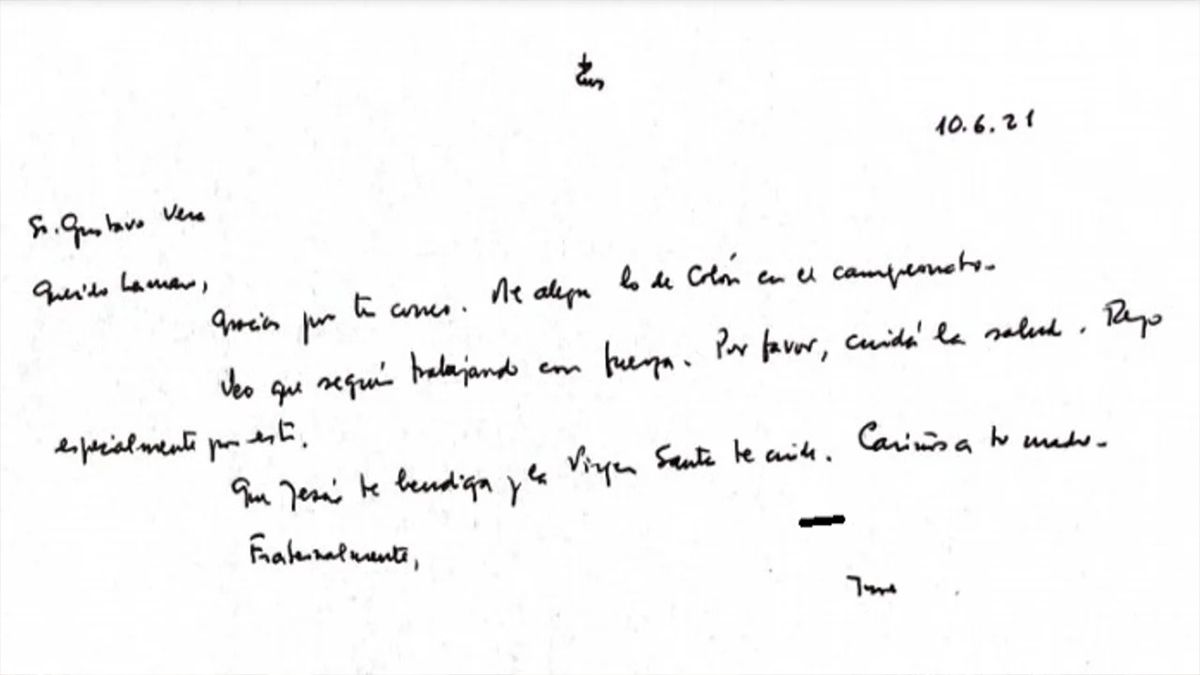 10.6.21
Sr. Gustavo Vera
Querido hermano,
Gracias por tu correo. Me alegra lo de Colón en el campeonato.
Veo que seguís trabajando con fuerza. Por favor, cuidá la salud. Rezo
especialmente por esto.
Que Jesús te bendiga y la Virgen Santa te cuide. Cariños a tu madre.
Fraternalmente,